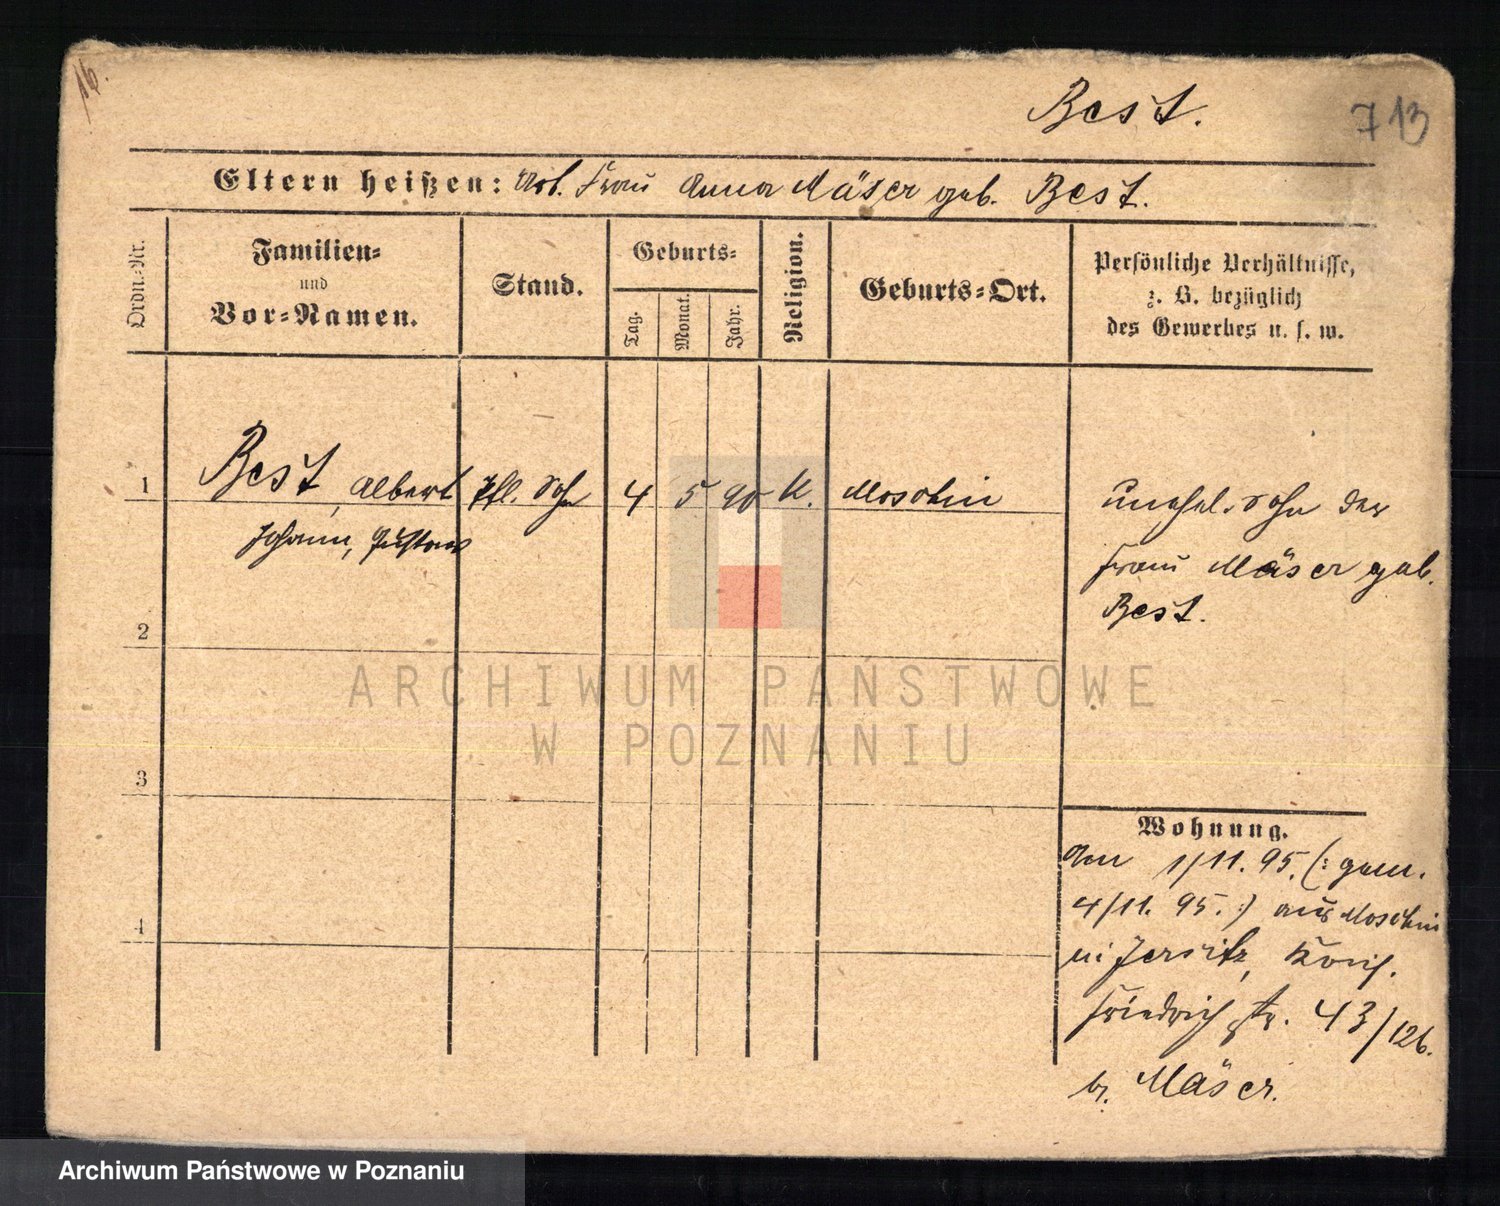 16.
Best.
713
Eltern heißen: Arb. Frau Anna Mäser geb. Best.
Ordn.-Nr.
Familien-
und
Vor-Namen.
Stand.
Geburts-
Tag.
Monat.
Jahr.
Religion.
Geburts-Ort.
Persönliche Verhältnisse,
z. B. bezüglich
des Gewerbes u. s. w.
1 Best, Albert Pfl. Sohn 4 5 90 k. Moschin
Johann, Gustav
unehel. Sohn der
Frau Mäser geb.
Best.
2
3
4
Wohnung.
Am 1/11. 95. (: gem.
4/11. 95. :) aus Moschin
in Jersitz, König.
Friedrich str. 43/126.
b. Mäser.
ARCHIWUM PAŃSTWOWE
W POZNANIU
Archiwum Państwowe w Poznaniu